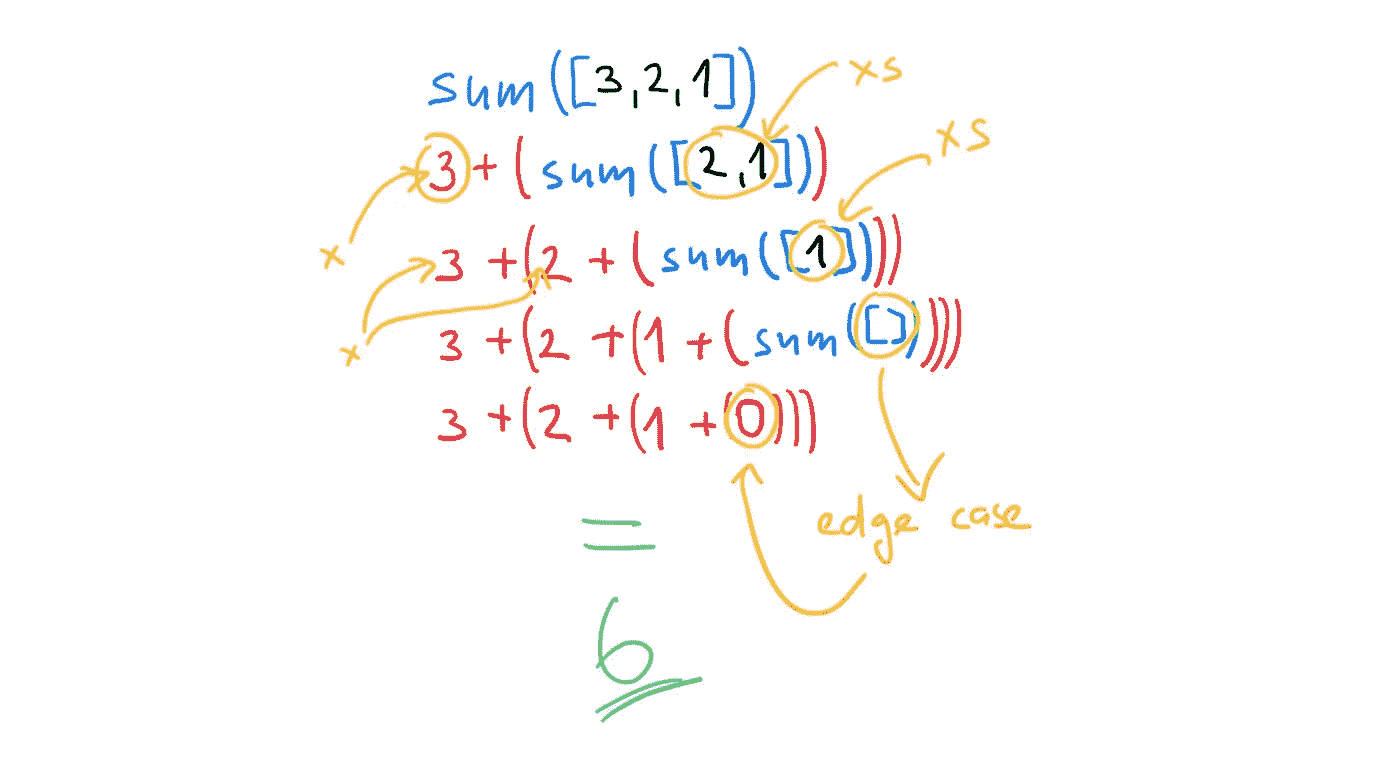 sum([3,2,1])
xs
3 + (sum([2,1]))
xs
x
3 + (2 + (sum([1])))
x
3 + (2 + (1 + (sum([]))))
3 + (2 + (1 + (0)))
edge case
=
6